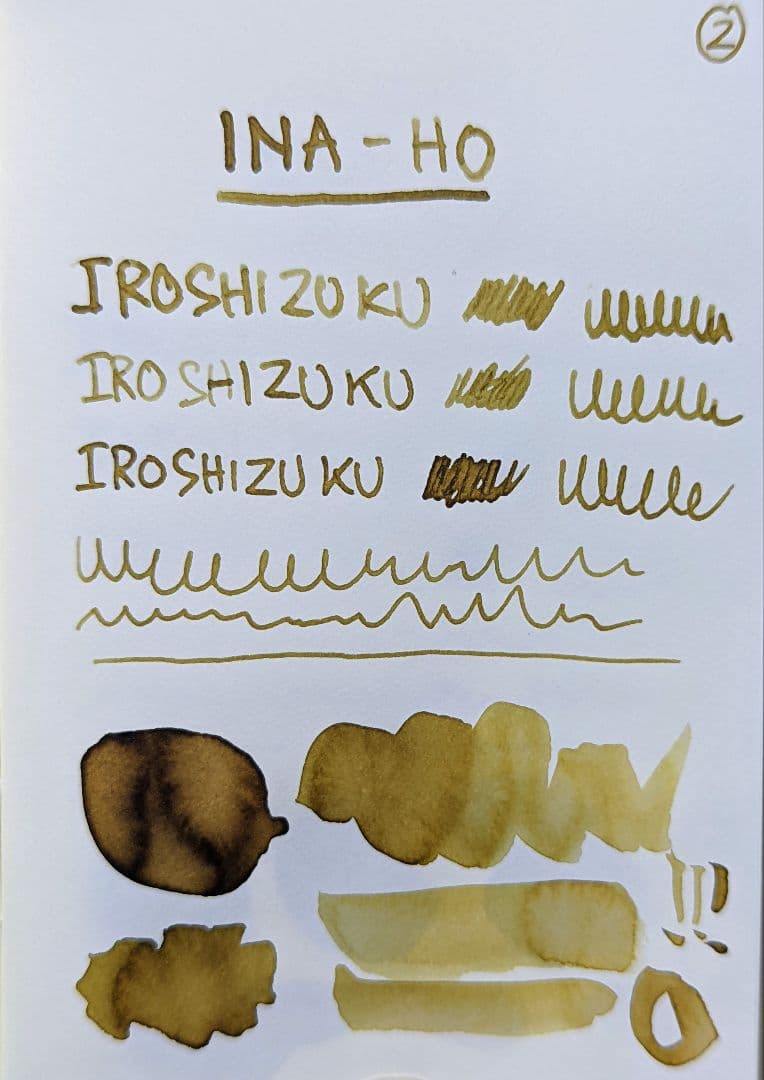 ②
INA-HO
IROSHIZUKU
IROSHIZUKU
IROSHIZUKU